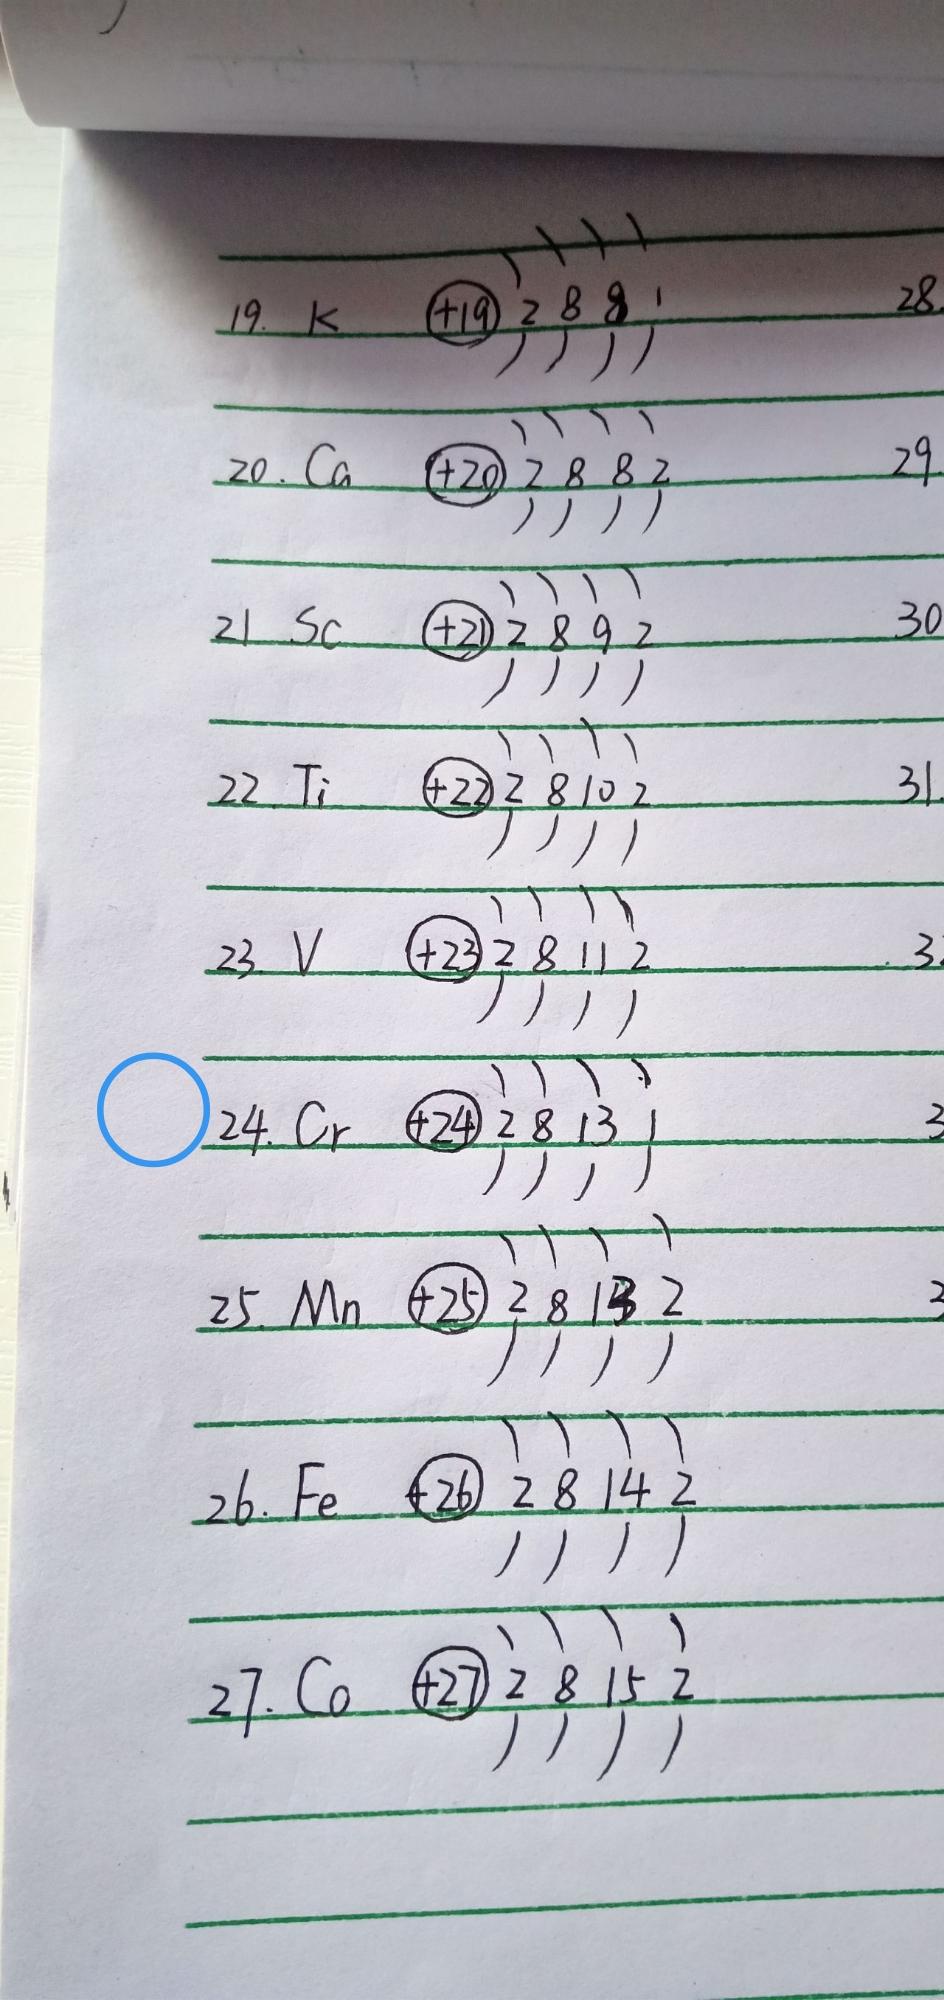 19. K +19 2 8 8 1 28.
20. Ca +20 2 8 8 2 29
21 Sc +21 2 8 9 2 30
22 Ti +22 2 8 10 2 31.
23. V +23 2 8 11 2 3
24. Cr +24 2 8 13 1 3
25. Mn +25 2 8 13 2 3
26. Fe +26 2 8 14 2
27. Co +27 2 8 15 2